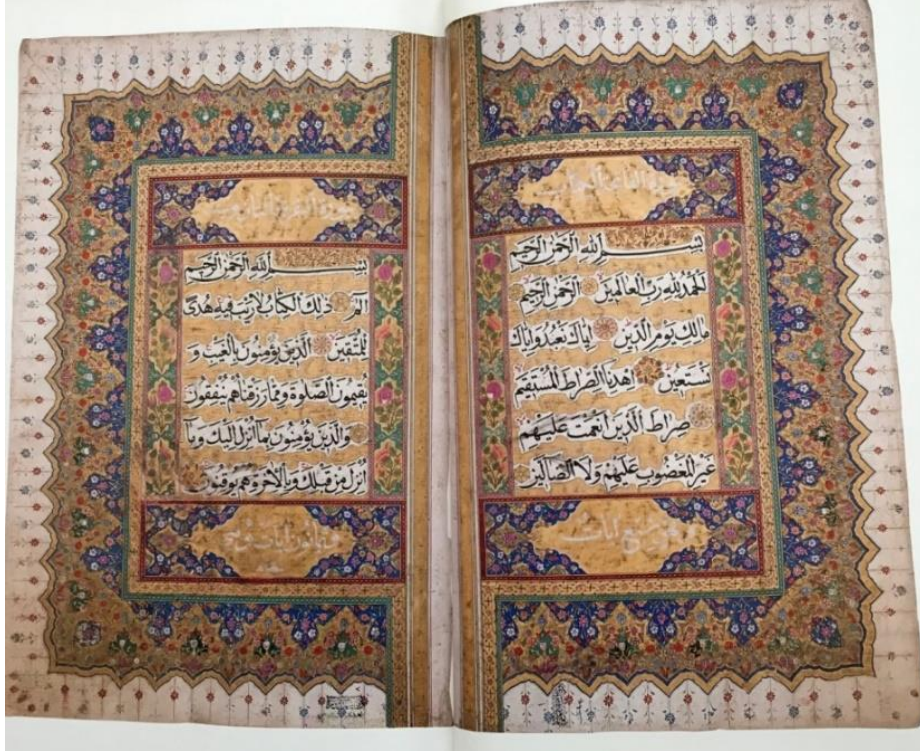 سورة فاتحة الكتاب
بسم الله الرحمن الرحيم
الحمد لله رب العالمين الرحمن الرحيم
مالك يوم الدين اياك نعبد واياك
نستعين اهدنا الصراط المستقيم
صراط الذين انعمت عليهم
غير المغضوب عليهم ولا الضالين
سبع ايات
بسم الله الرحمن الرحيم
الم ذلك الكتاب لا ريب فيه هدى
للمتقين الذين يؤمنون بالغيب و
يقيمون الصلوة ومما رزقناهم ينفقون
والذين يؤمنون بما انزل اليك وما
انزل من قبلك وبالاخرة هم يوقنون